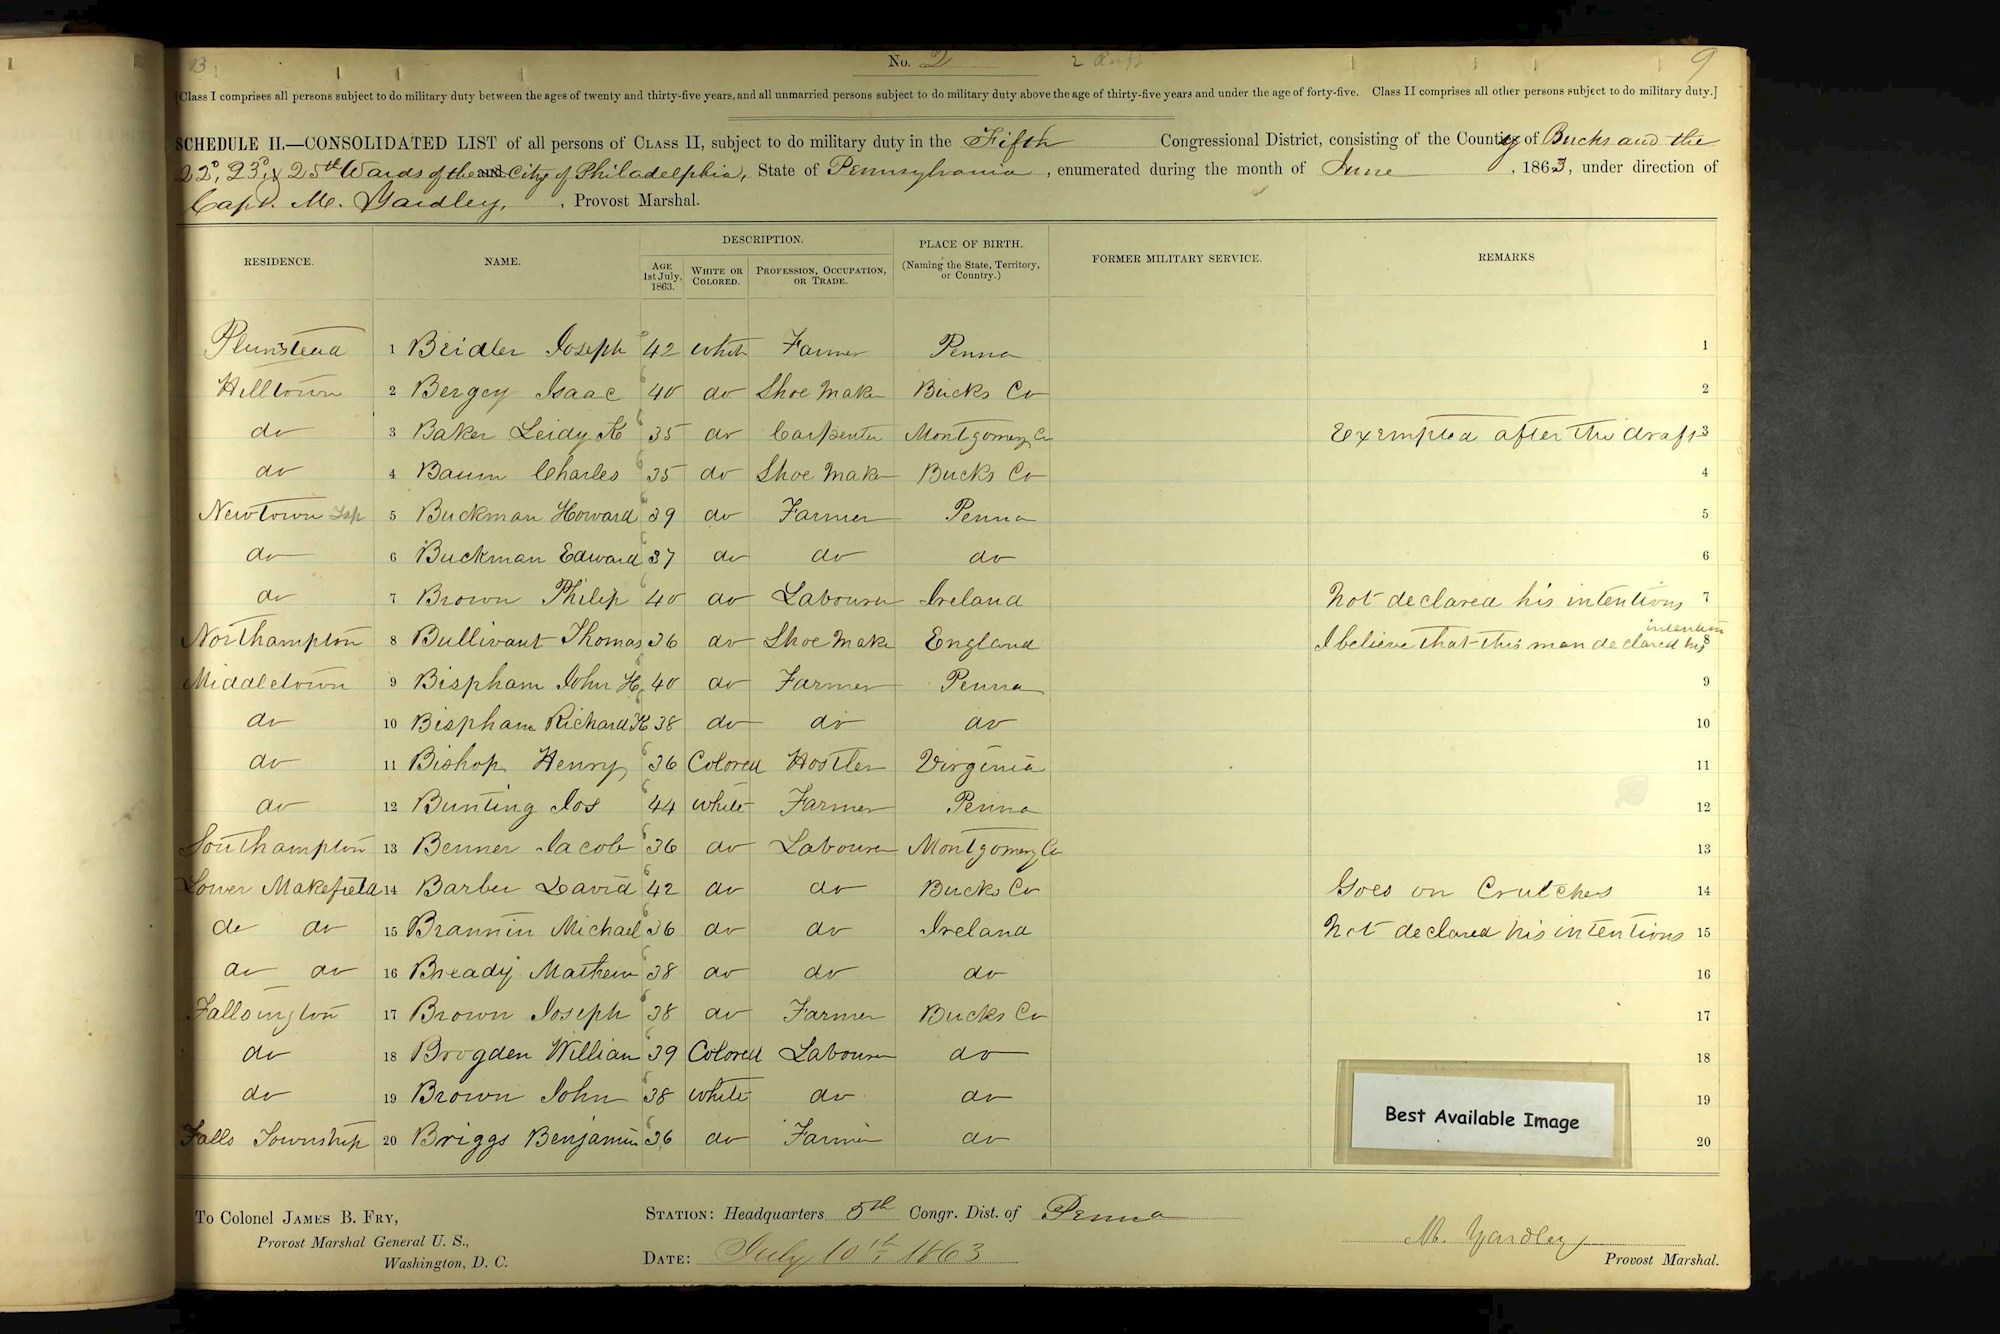 B No. 2 9
[Class I comprises all persons subject to do military duty between the ages of twenty and thirty-five years, and all unmarried persons subject to do military duty above the age of thirty-five years and under the age of forty-five. Class II comprises all other persons subject to do military duty.]
SCHEDULE II.—CONSOLIDATED LIST of all persons of CLASS II, subject to do military duty in the Fifth Congressional District, consisting of the County of Bucks and the
22d, 23d, & 25th Wards of the and City of Philadelphia, State of Pennsylvania, enumerated during the month of June, 1863, under direction of
Capt. M. Yardley, , Provost Marshal.
RESIDENCE. NAME. DESCRIPTION. PLACE OF BIRTH. (Naming the State, Territory, or Country.) FORMER MILITARY SERVICE. REMARKS
AGE 1st July, 1863. WHITE OR COLORED. PROFESSION, OCCUPATION, OR TRADE.
Plumstead 1 Bridler Joseph 42 white Farmer Penna 1
Hilltown 2 Bergey Isaac 40 do Shoe Maker Bucks Co 2
do 3 Baker Leidy K 35 do Carpenter Montgomery Co Exempted after the draft 3
do 4 Baum Charles 35 do Shoe Maker Bucks Co 4
Newtown Tsp 5 Buckman Howard 39 do Farmer Penna 5
do 6 Buckman Edward 37 do do do 6
do 7 Brown Philip 40 do Labourer Ireland Not declared his intentions 7
Northampton 8 Bullivant Thomas 36 do Shoe Make England I believe that this man declared his intention 8
Middletown 9 Bispham John H. 40 do Farmer Penna 9
do 10 Bispham Richard K 38 do do do 10
do 11 Bishop Henry 36 Colored Hostler Virginia 11
do 12 Bunting Jos 44 white Farmer Penna 12
Southampton 13 Benner Jacob 36 do Labourer Montgomery Co 13
Lower Makefield 14 Barber David 42 do do Bucks Co Goes on Crutches 14
do do 15 Brannin Michael 36 do do Ireland Not declared his intentions 15
do do 16 Bready Mathew 38 do do do 16
Fallsington 17 Brown Joseph 38 do Farmer Bucks Co 17
do 18 Brogden William 39 Colored Labourer do 18
do 19 Brown John 38 white do do 19
Falls Township 20 Briggs Benjamin 36 do Farmer do 20
Best Available Image
To Colonel JAMES B. FRY,
Provost Marshal General U. S.,
Washington, D. C.
STATION: Headquarters 5th Congr. Dist. of Penna
DATE: July 10th 1863
M. Yardley
Provost Marshal.